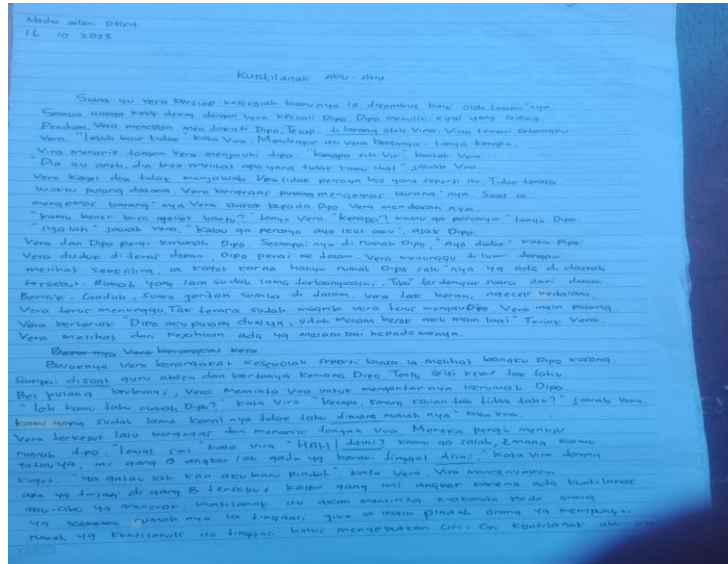 Nadia
16 10 2023
Kuntilanak Abu-Abu
Siang itu Vera bersiap kesekolah barunya. Ia disambut baik oleh teman"nya.
Semua warga kelas dengan Vera kecuali Dipo. Dipo memiliki sifat yang
Vera mencoba mendekati Dipo, Tetapi dilarang oleh Vira. Vira teman sebangku
Vera. "Lebih baik tidak" kata Vira. Mendengar itu Vera bertanya-tanya kenapa.
Vira menarik tangan Vera menjauhi dipo. "Kenapa sih Vir" bentak Vera.
"Dia itu aneh, dia bisa melihat apa yang tidak kamu lihat" jawab Vira.
Vera kaget dan tidak menjawab Vera tidak percaya hal yang seperti itu. Tidak terasa
waktu pulang datang. Vera bergegas pulang mengemas barang"nya. Saat ia
mengemas barang"nya Vera kepada Dipo. Vera mendekatinya.
"kamu bener bisa ngeliat hantu?" tanya Vera. "kenapa? kamu ga percaya" tanya Dipo.
"Iya lah" jawab Vera. "Kalau ga percaya ayo ikut aku", ajak Dipo.
Vera dan Dipo pergi kerumah Dipo. Sesampainya di rumah Dipo, "Ayo duduk" kata Dipo.
Vera duduk di teras depan, Dipo pergi ke dalam. Vera menunggu di luar dengan
melihat sekeliling, ia kaget karna hanya rumah Dipo satu"nya yg ada di daerah
tersebut. Rumah yang lain sudah lama terbengkalai. Tiba" terdengar suara dari dalam.
Berisik, Gaduh, suara jeritan semua di dalam. Vera tak berani, ngecek kedalam.
Vera terus menunggu, Tak terasa sudah magrib Vera terus menunggu Dipo. Vera ingin pulang.
Vera berteriak "Dipo aku pulang dulu ya, udah malam besok aku main lagi" Teriak Vera.
Vera melihat dari kejauhan ada yg melambai kepadanya.
Besoknya Vera berangkat kesekolah seperti biasa. Ia melihat bangku Dipo kosong.
Sampai disaat guru absen dan bertanya kemana Dipo. Tentu seisi kelas tak tahu.
Bel pulang berbunyi, Vera meminta Vira untuk mengantarnya kerumah Dipo.
"loh kamu tahu rumah Dipo?" kata Vira "kenapa, Emang kalian tah tidak tahu?" jawab Vera.
kami yang sudah lama kenalnya tidak tahu dimana rumah nya" kata Vira.
Vera terkejut lalu bergegas dan menarik tangan Vira. Mereka pergi menuju
rumah dipo. "lewat sini" kata Vira "HAH! disini? kamu ga salah, Emang kamu
gatau ya, ini gang B angker loh gada yg berani tinggal disini." kata Vira dengan
kaget. "ya gatau lah kan aku baru pindah" kata Vera. Vira menceritakan
apa yg terjadi di gang B tersebut kalau gang ini angker karena ada kuntilanak
abu-abu yg Kuntilanak itu akan meminta makanan pada orang
yg rumah nya ia tinggali. Jika ia ingin pindah orang yg mempunyai
rumah yg kuntilanak itu tinggali harus menyebutkan ciri-ciri kuntilanak abu-abu